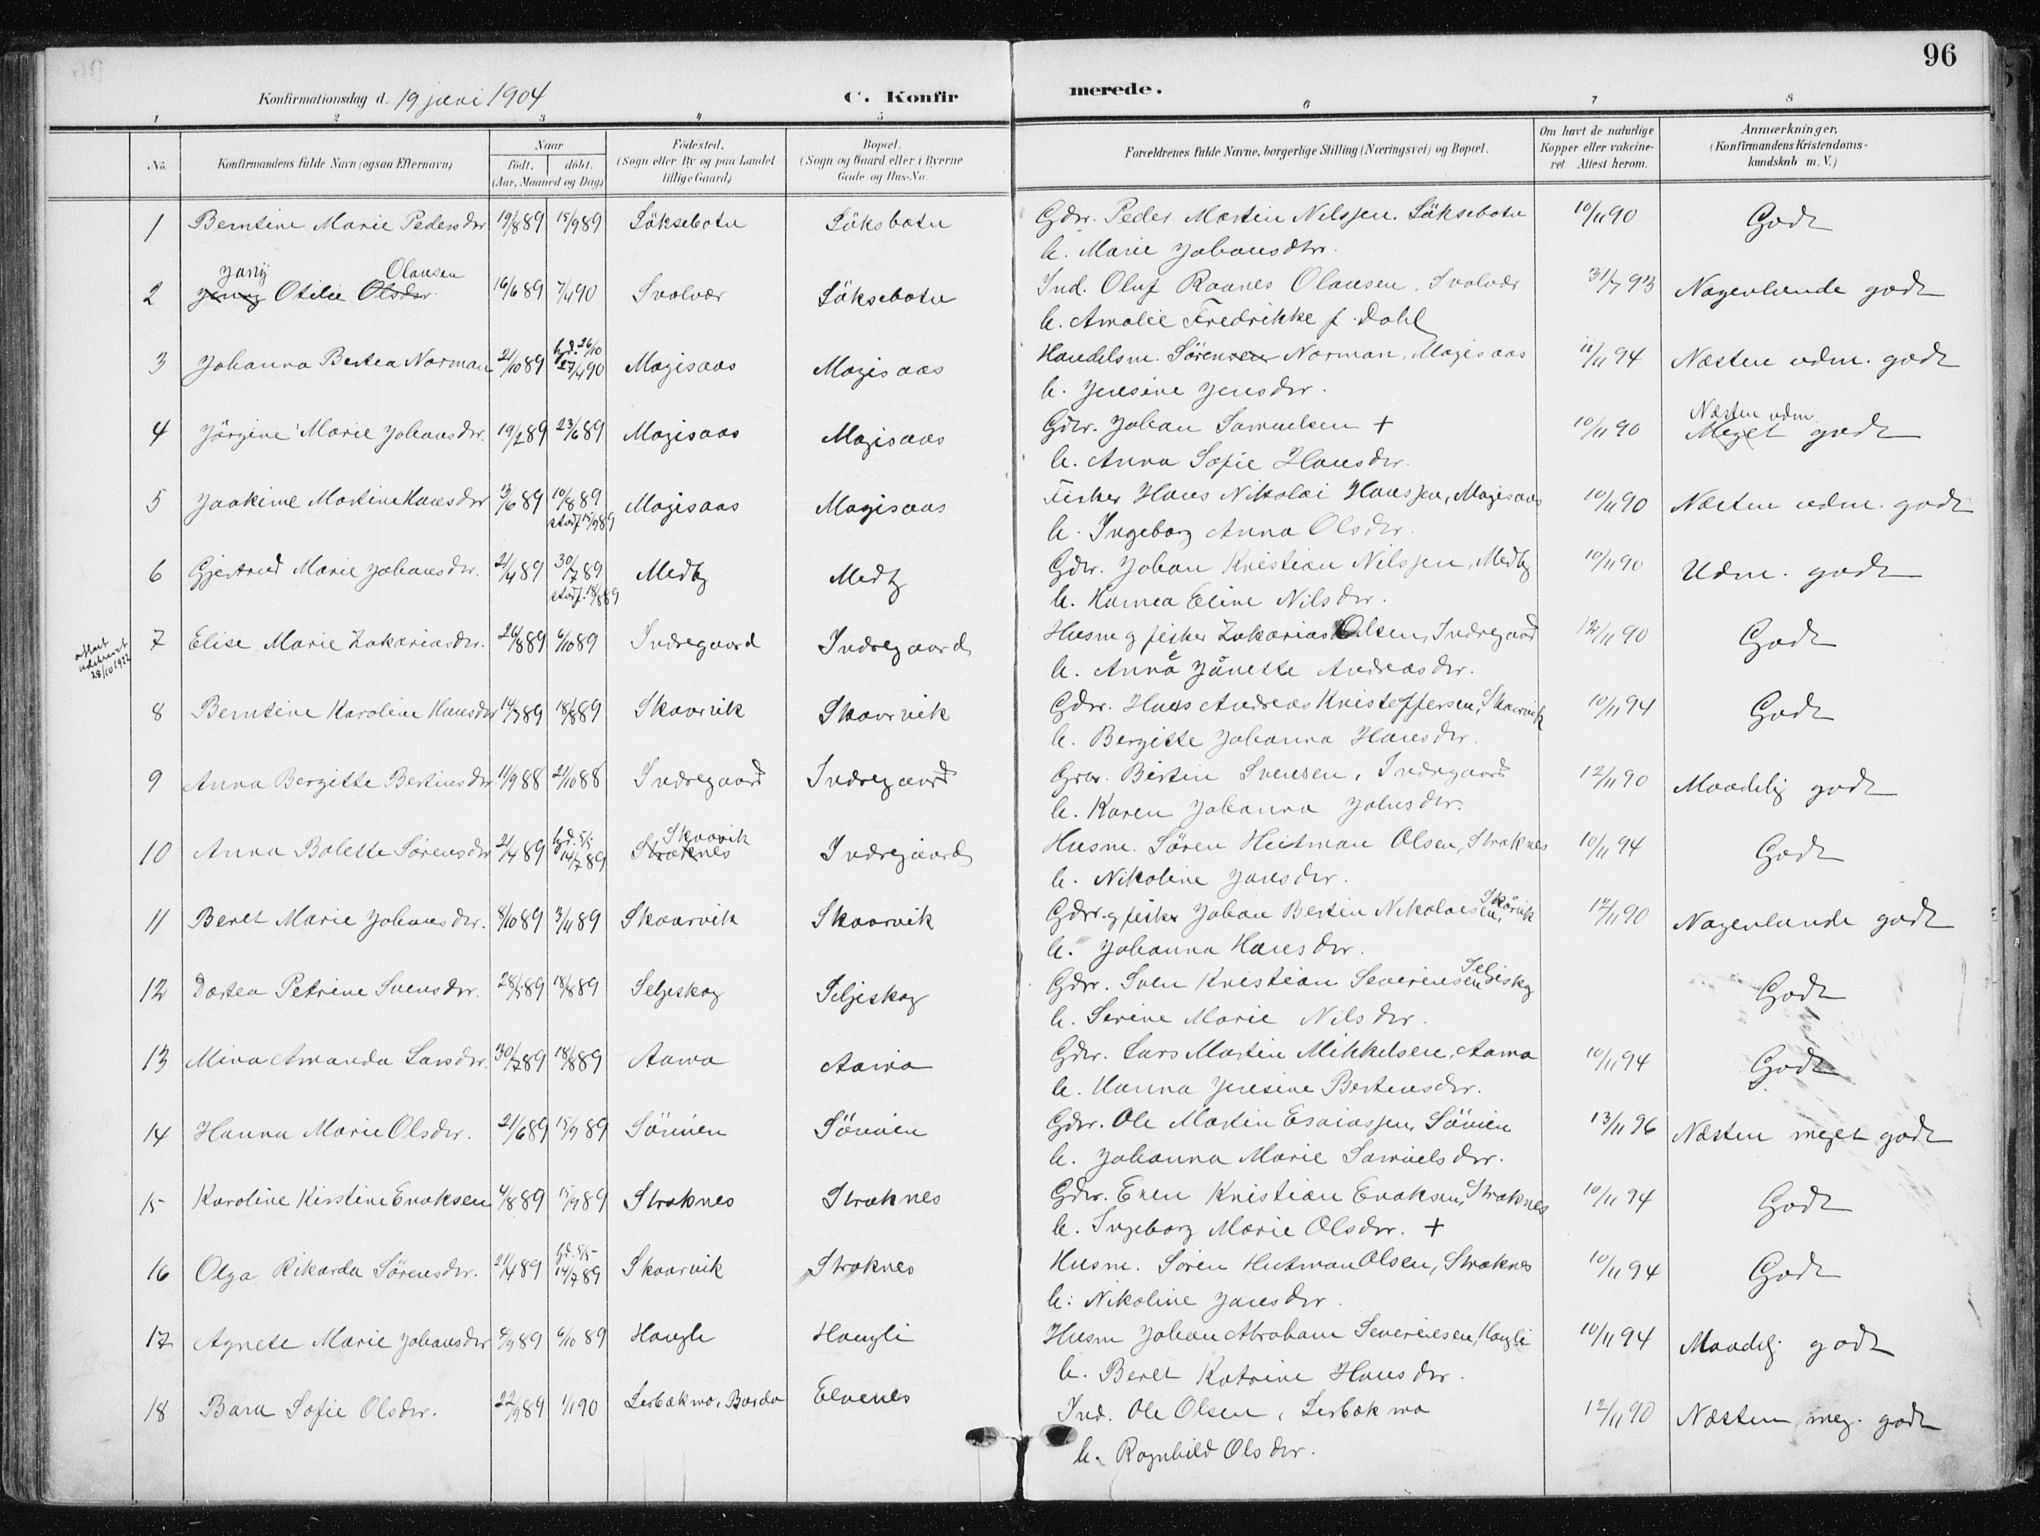 96
Konfirmationsdag d. 19 juni 1904 C. Konfirmerede.
1 2 3 4 5 6 7 8
No. Konfirmandens fulde Navn (ogsaa Efternavn) Naar født. døbt. (Aar, Maaned og Dag) Fødested. (Sogn eller By og paa Landet tillige Gaard) Bopæl. (Sogn og Gaard eller i Byerne Gade og Hus-No. Forældrenes fulde Navne, borgerlige Stilling (Næringsvei) og Bopæl. Om havt de naturlige Kopper eller vakcineret Attest herom. Anmærkninger. (Konfirmandens Kristendomskundskab m. V.)
1 Berntine Marie Pedersdtr 19/8 89 15/9 89 Löksebotn Löksbotn Gdbr. Peder Martin Nilssen. Löksebotn 10/11 90 Godt
h. Marie Johansdtr.
Jany Olausen
2 Jenny Otilie Olsdtr. 16/6 89 7/4 90 Svolvær Löksebotn Ind. Oluf Raanes Olausen, Svolvær 31/7 93 Nogenlunde godt
h. Amalie Fredrikke f. Dahl
3 Johanna Bertea Norman 21/10 89 hd. 26/10 27/4 90 Mogisaas Mogisaas Handelsm. Sörensen Norman, Mogisaas 11/11 94 Næsten udm. godt
h. Jensine Jensdtr.
4 Jörgine Marie Johansdtr. 19/2 89 23/6 89 Mogisaas Mogisaas Gdbr. Johan Samuelsen + 10/11 90 Næsten udm. Meget godt
h. Anna Sofie Hansdtr.
5 Joakime Martine Hansdtr 13/6 89 10/8 89 stadf. 15/9 89 Mogisaas Mogisaas Fisker Hans Nikolai Hanssen, Mogisaas 10/11 90 Næsten udm. godt
h. Ingeborg Anna Olsdtr.
6 Gjertrud Marie Johansdtr. 21/4 89 30/7 89 stadf. 18/8 89 Medby Medby Gdbr. Johan Kristian Nilssen, Medby 10/11 90 Udm. godt
h. Hamea Eline Nilsdtr.
attest udskrevet 28/10 1922
7 Elise Marie Zakariasdtr. 26/8 89 6/10 89 Indregaard Indregaard Husm. og fisker Zakarias Olsen, Indregaard 12/11 90 Godt
h. Anna Janette Andreasdtr.
8 Berntine Karoline Hansdtr 14/7 89 18/8 89 Skaarvik Skaarvik Gdbr. Hans Andreas Kristoffersen, Skaarvik 10/11 94 Godt
h. Bergitte Johanna Hansdtr.
9 Anna Bergitte Bertinsdtr 11/9 88 21/10 88 Indregaard Indregaard Gdbr. Bertin Svensen, Indregaard 12/11 90 Maadelig godt
h. Karen Johanna Johnsdtr.
10 Anna Bolette Sörensdtr 21/4 89 hd. 5/5 14/7 89 Skaarvik Straknes Indregaard Husm. Sören Heitman Olsen, Straknes 10/11 94 Godt
h. Nikoline Jansdtr.
11 Beret Marie Johansdtr. 8/10 89 3/11 89 Skaarvik Skaarvik Gdbr. og fisker Johan Bertin Nikolaisen, Skarvik 12/11 90 Nogenlunde godt
h. Johanna Hansdtr.
12 Dortea Petrine Svensdtr. 28/5 89 18/8 89 Seljeskog Seljeskog Gdbr. Sven Kristian Severinsen Seljeskog Godt
h. Serine Marie Nilsdtr.
13 Mina Amanda Larsdtr. 30/7 89 18/8 89 Aarva Aarva Gdbr. Lars Martin Mikkelsen, Aarva 10/11 94 Godt
h. Hanna Jensine Bertensdtr.
14 Hanna Marie Olsdtr. 21/6 89 15/9 89 Sörvien Sörvien Gdbr. Ole Martin Esaiassen, Sörvien 13/11 96 Næsten meget godt
h. Johanna Marie Samuelsdtr.
15 Karoline Kirstine Enoksen 4/8 89 15/9 89 Straknes Straknes Gdbr. Enen Kristian Enoksen, Straknes 10/11 94 Godt
h. Ingeborg Marie Olsdtr. +
16 Olga Rikarda Sörensdtr. 21/4 89 hd. 5/5 14/7 89 Skaarvik Straknes Husm. Sören Heitman Olsen, Straknes 10/11 94 Godt
h: Nikoline Jansdtr.
17 Agnete Marie Johansdtr 4/9 89 6/10 89 Haugli Haugli Husm Johan Abraham Severinsen, Haugli 10/11 94 Maadelig godt
h. Beret Katrine Hansdtr.
18 Bara Sofie Olsdtr. 22/9 89 1/1 90 Lerbakmo, Bardo Elvenes Ind. Ole Olsen, Lerbakmo 12/11 90 Næsten meg. godt
h. Ragnhild Olsdtr.